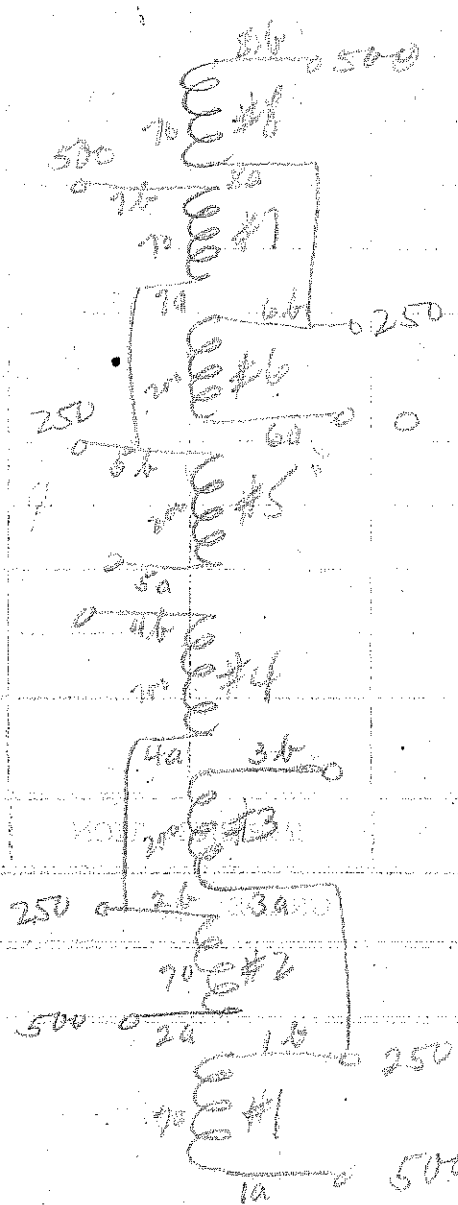 8b 500
70 #8
500
8a
7b
70 #7
7a
6b
250
#6
6a 0
250
5b
#5
5a
4b
#4
4a
3b
#3
250 2b 3a
70 #2
500 2a
1b
250
70 #1
1a 500